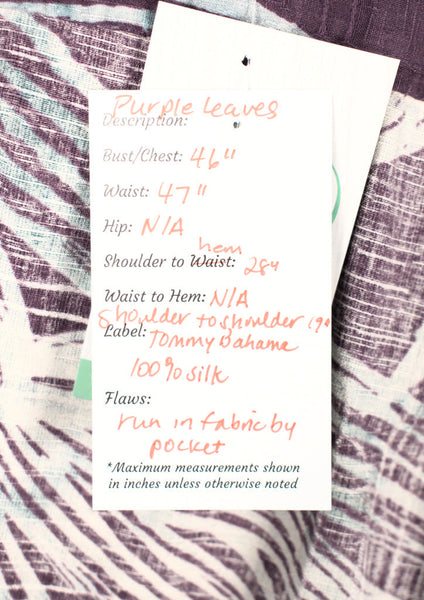 Purple Leaves
Description:
Bust/Chest: 46"
Waist: 47"
Hip: N/A
hem
Shoulder to Waist: 28"
Waist to Hem: N/A
Shoulder to shoulder 19"
Label: Tommy Bahama
100% silk
Flaws:
run in fabric by
pocket
*Maximum measurements shown
in inches unless otherwise noted